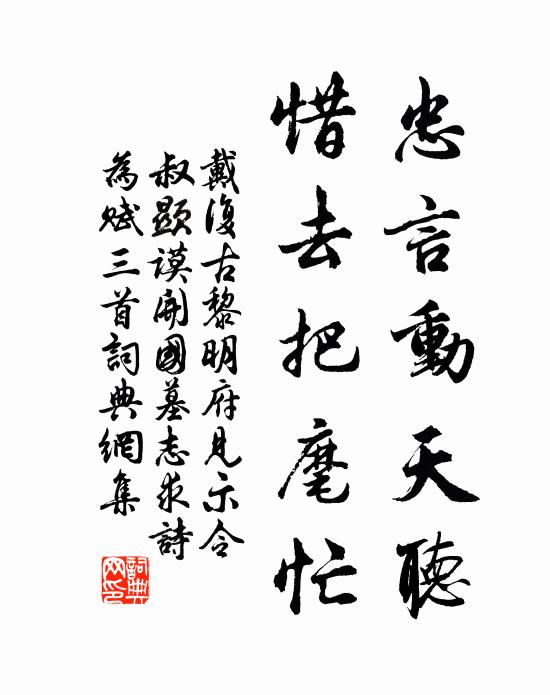 忠言動天聽
惜去把麾忙
戴復古黎明府見示令
叔顯謨開國墓志求詩
為賦三首詞典網集
詞典
网印